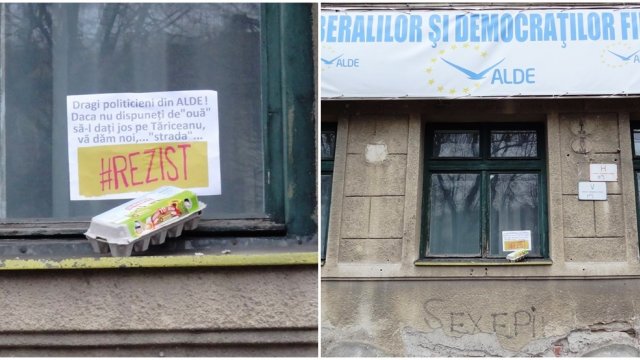 Dragi politicieni din ALDE!
Daca nu dispuneți de"ouă"
să-l dați jos pe Tăriceanu,
vă dăm noi,..."strada"...
#REZIST
BERALILOR ȘI DEMOCRAȚILOR
ALDE
ALDE
H
V
SEXEPIL